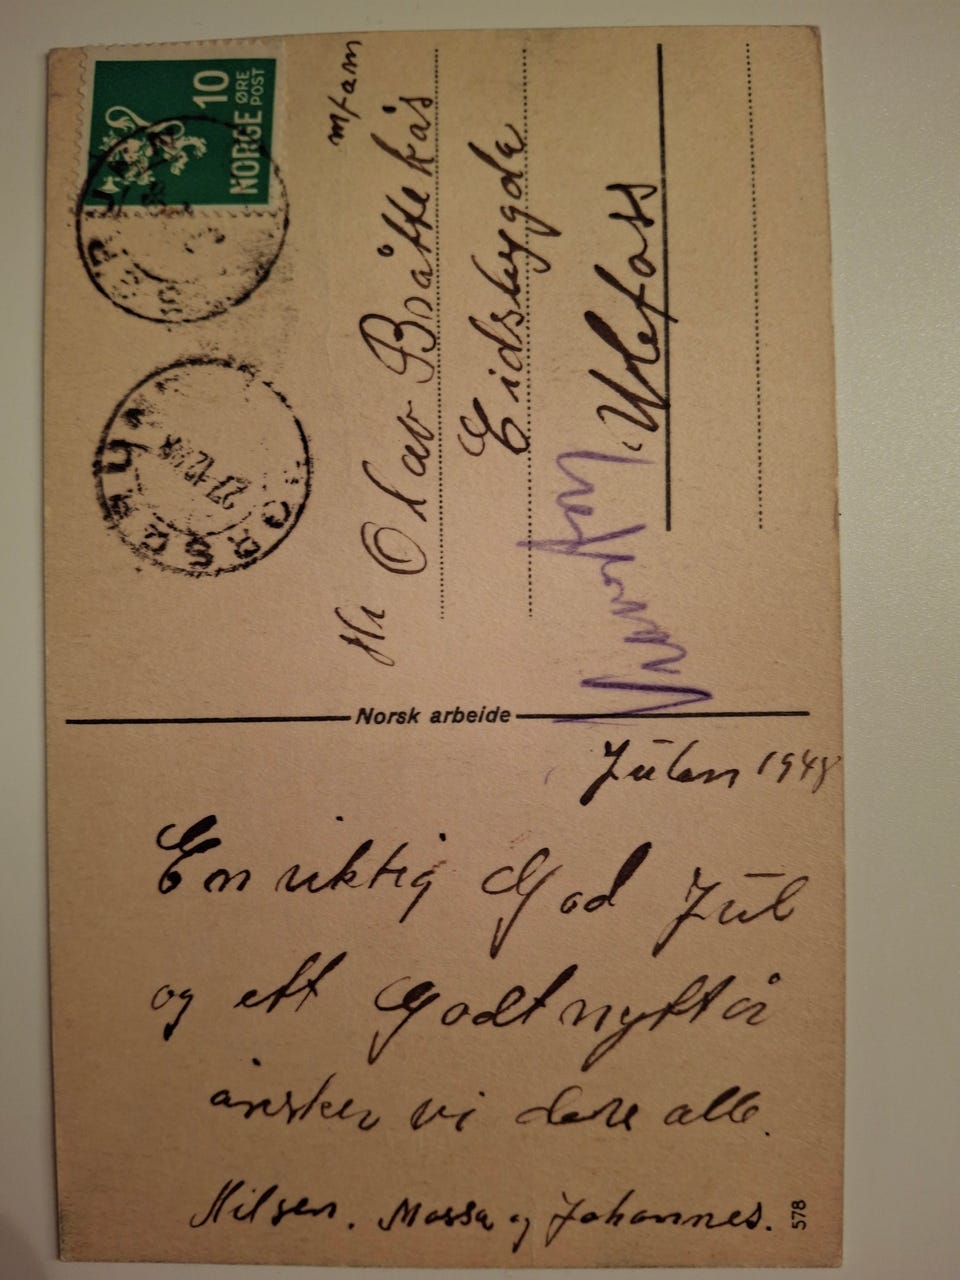 Julen 1948
En riktig God Jul
og ett Godt nytt å
ønsker vi dere alle.
Hilsen. Mossa og Johannes.
578
Norsk arbeide
10 ØRE
NORGE POST
27.12
m/fam
Hr Olav Bråttekås
Eidsbygda
Ulefoss